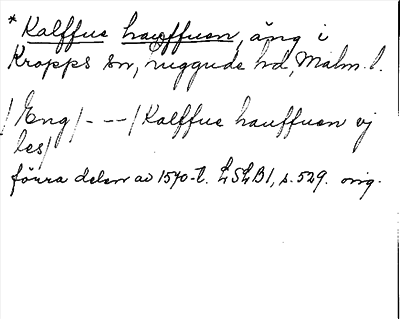 * Kalffue hauffuen, äng i
Kropps sn, Luggude hd, Malm. l.
/Eng/ - - -/ Kalffue hauffuen ej
les/
förra delen av 1570-t. LSLB1, s. 529. orig.